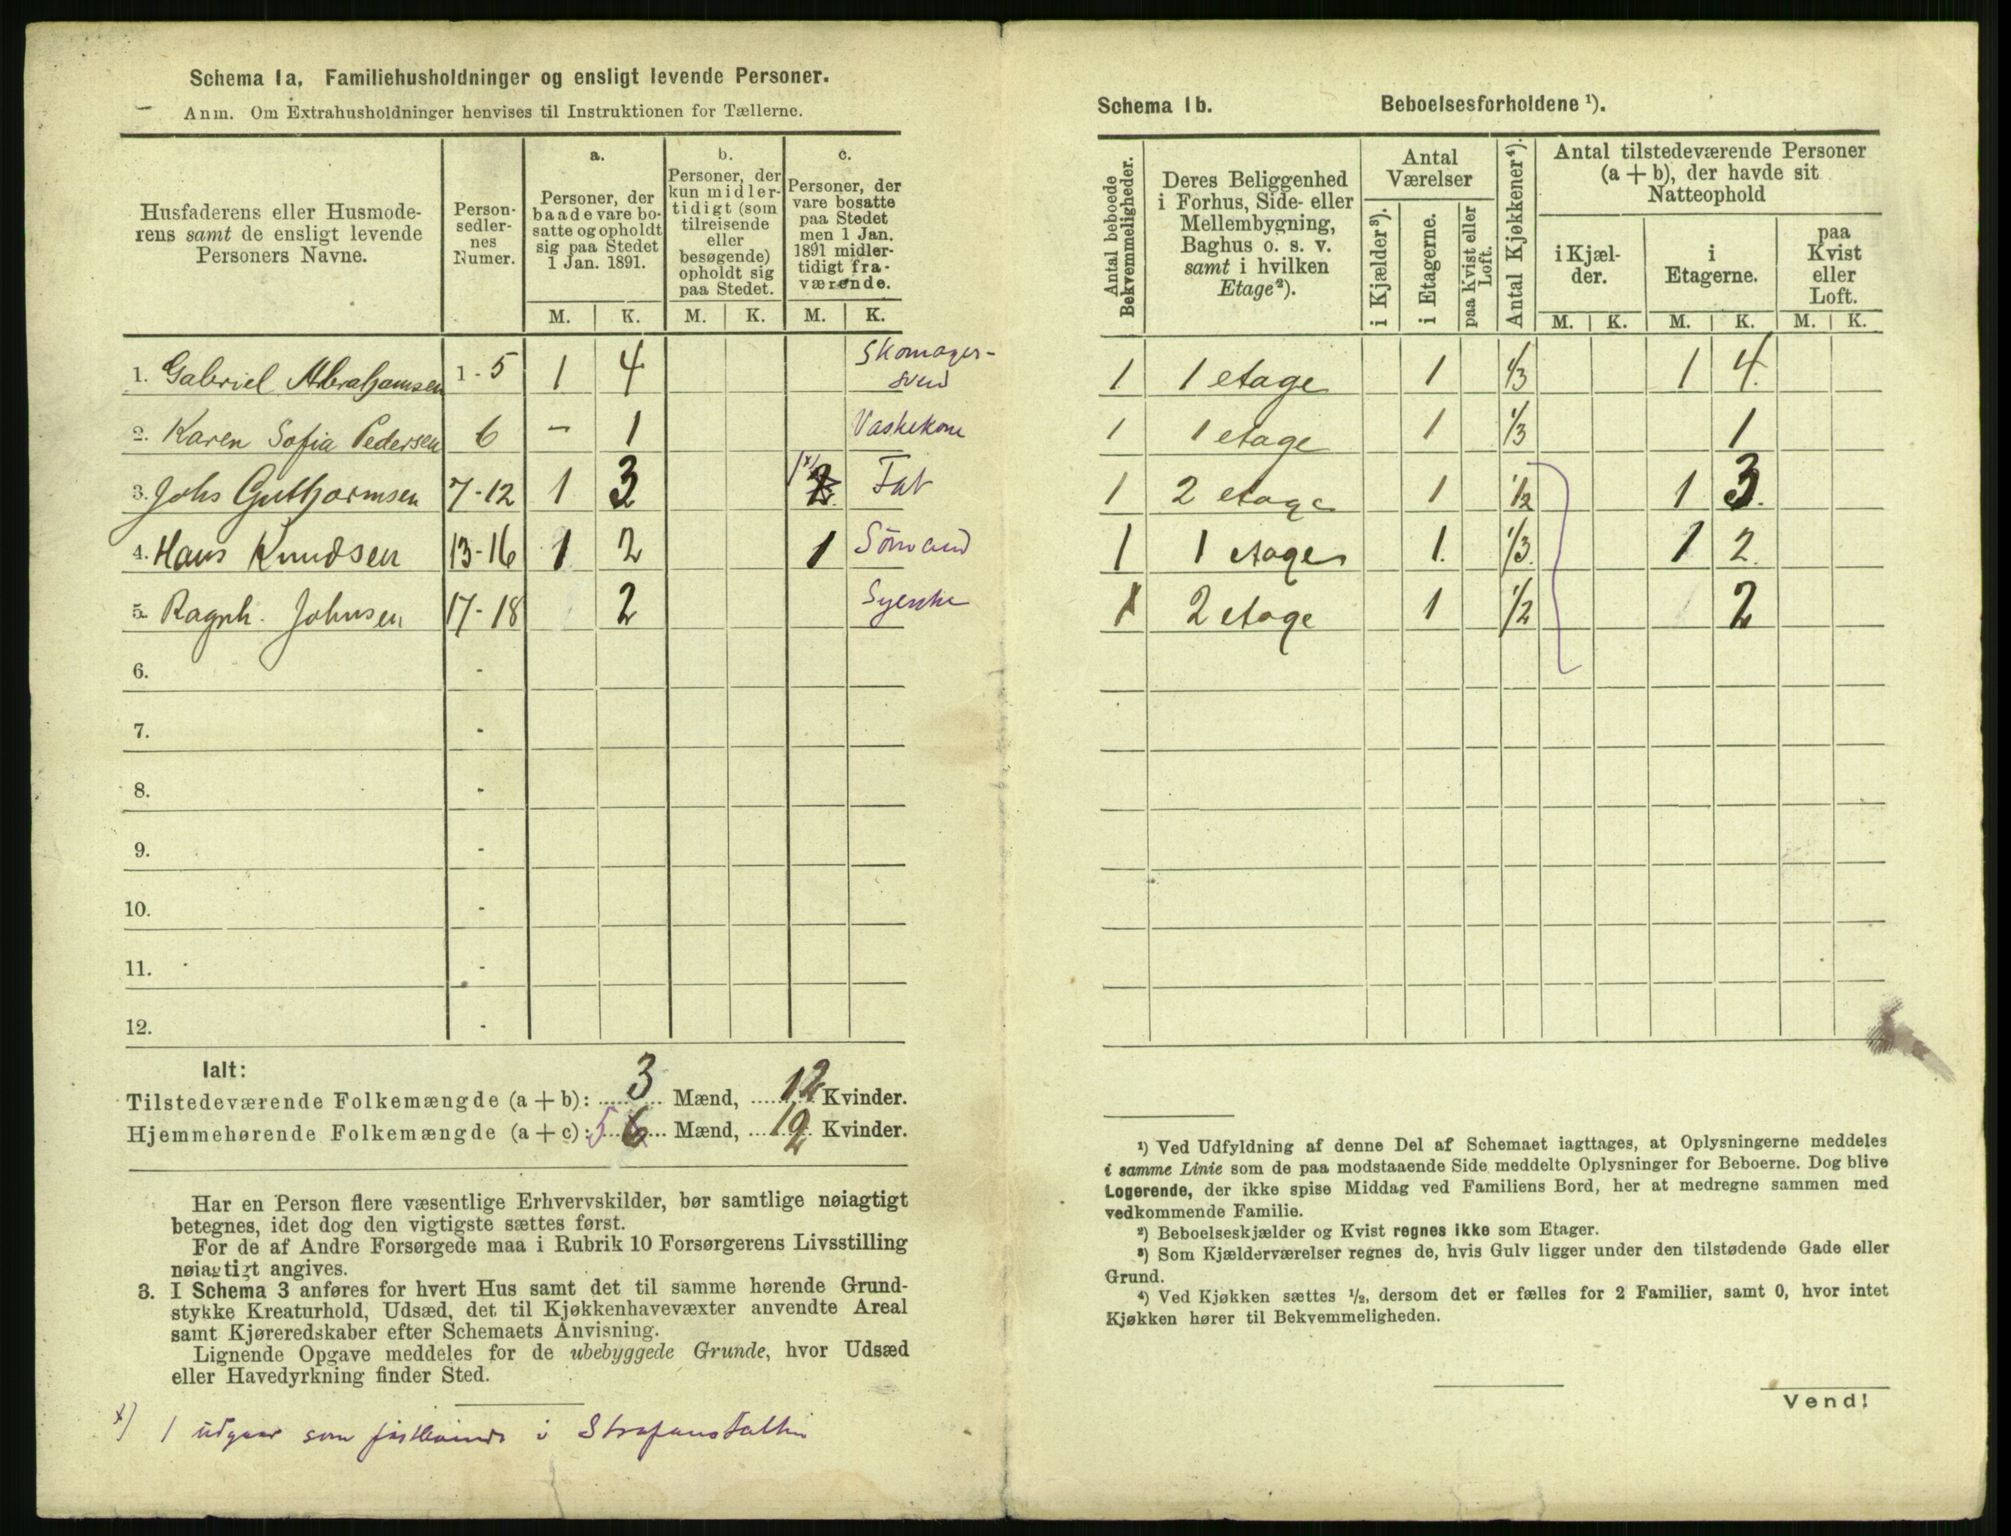 Schema 1a. Familiehusholdninger og ensligt levende Personer.
Anm. Om Extrahusholdninger henvises til Instruktionen for Tællerne.
Husfaderens eller Husmode-
rens samt de ensligt levende
Personers Navne.
Person-
sedler-
nes
Numer.
a.
Personer, der
baade vare bo-
satte og opholdt
sig paa Stedet
1 Jan. 1891.
b.
Personer, der
kun midler-
tidigt (som
tilreisende
eller
besøgende)
opholdt sig
paa Stedet.
c.
Personer, der
vare bosatte
paa Stedet
men 1 Jan.
1891 midler-
tidigt fra-
værende.
M. K. M. K. M. K.
1. Gabriel Abrahamsen 1 - 5 1 4 Skomager-
svend
2. Karen Sofia Pedersen 6 - 1 Vaskekone
3. Johs Guthormsen 7 - 12 1 3 1 x) Fat
4. Hans Knudsen 13 - 16 1 2 1 Sömand
5. Ragnh. Johnsen 17 - 18 2 Syerske
6. -
7. -
8. -
9. -
10. -
11. -
12. -
Ialt:
Tilstedeværende Folkemængde (a + b): 3 Mænd, 12 Kvinder.
Hjemmehørende Folkemængde (a + c): 5 6 Mænd, 12 Kvinder.
Har en Person flere væsentlige Erhvervskilder, bør samtlige nøiagtigt
betegnes, idet dog den vigtigste sættes først.
For de af Andre Forsørgede maa i Rubrik 10 Forsørgerens Livsstilling
nøiagtigt angives.
3. I Schema 3 anføres for hvert Hus samt det til samme hørende Grund-
stykke Kreaturhold, Udsæd, det til Kjøkkenhavevæxter anvendte Areal
samt Kjøreredskaber efter Schemaets Anvisning.
Lignende Opgave meddeles for de ubebyggede Grunde, hvor Udsæd
eller Havedyrkning finder Sted.
x) 1 udgaar som i Strafanstalten
Schema 1b. Beboelsesforholdene ¹).
Antal beboede
Bekvemmeligheder.
Deres Beliggenhed
i Forhus, Side- eller
Mellembygning,
Baghus o. s. v.
samt i hvilken
Etage²).
Antal
Værelser
i Kjælder³).
i Etagerne.
paa Kvist eller
Loft.
Antal Kjøkkener⁴).
Antal tilstedeværende Personer
(a + b), der havde sit
Natteophold
i Kjæl-
der.
i
Etagerne.
paa
Kvist
eller
Loft.
M. K. M. K. M. K.
1 1 etage 1 1/3 1 4
1 1 etage 1 1/3 1
1 2 etage 1 1/2 1 3
1 1 etage 1 1/3 1 2
1 2 etage 1 1/2 2
¹) Ved Udfyldning af denne Del af Schemaet iagttages, at Oplysningerne meddeles
i samme Linie som de paa modstaaende Side meddelte Oplysninger for Beboerne. Dog blive
Logerende, der ikke spise Middag ved Familiens Bord, her at medregne sammen med
vedkommende Familie.
²) Beboelseskjælder og Kvist regnes ikke som Etager.
³) Som Kjælderværelser regnes de, hvis Gulv ligger under den tilstødende Gade eller
Grund.
⁴) Ved Kjøkken sættes ½, dersom det er fælles for 2 Familier, samt 0, hvor intet
Kjøkken hører til Bekvemmeligheden.
Vend!